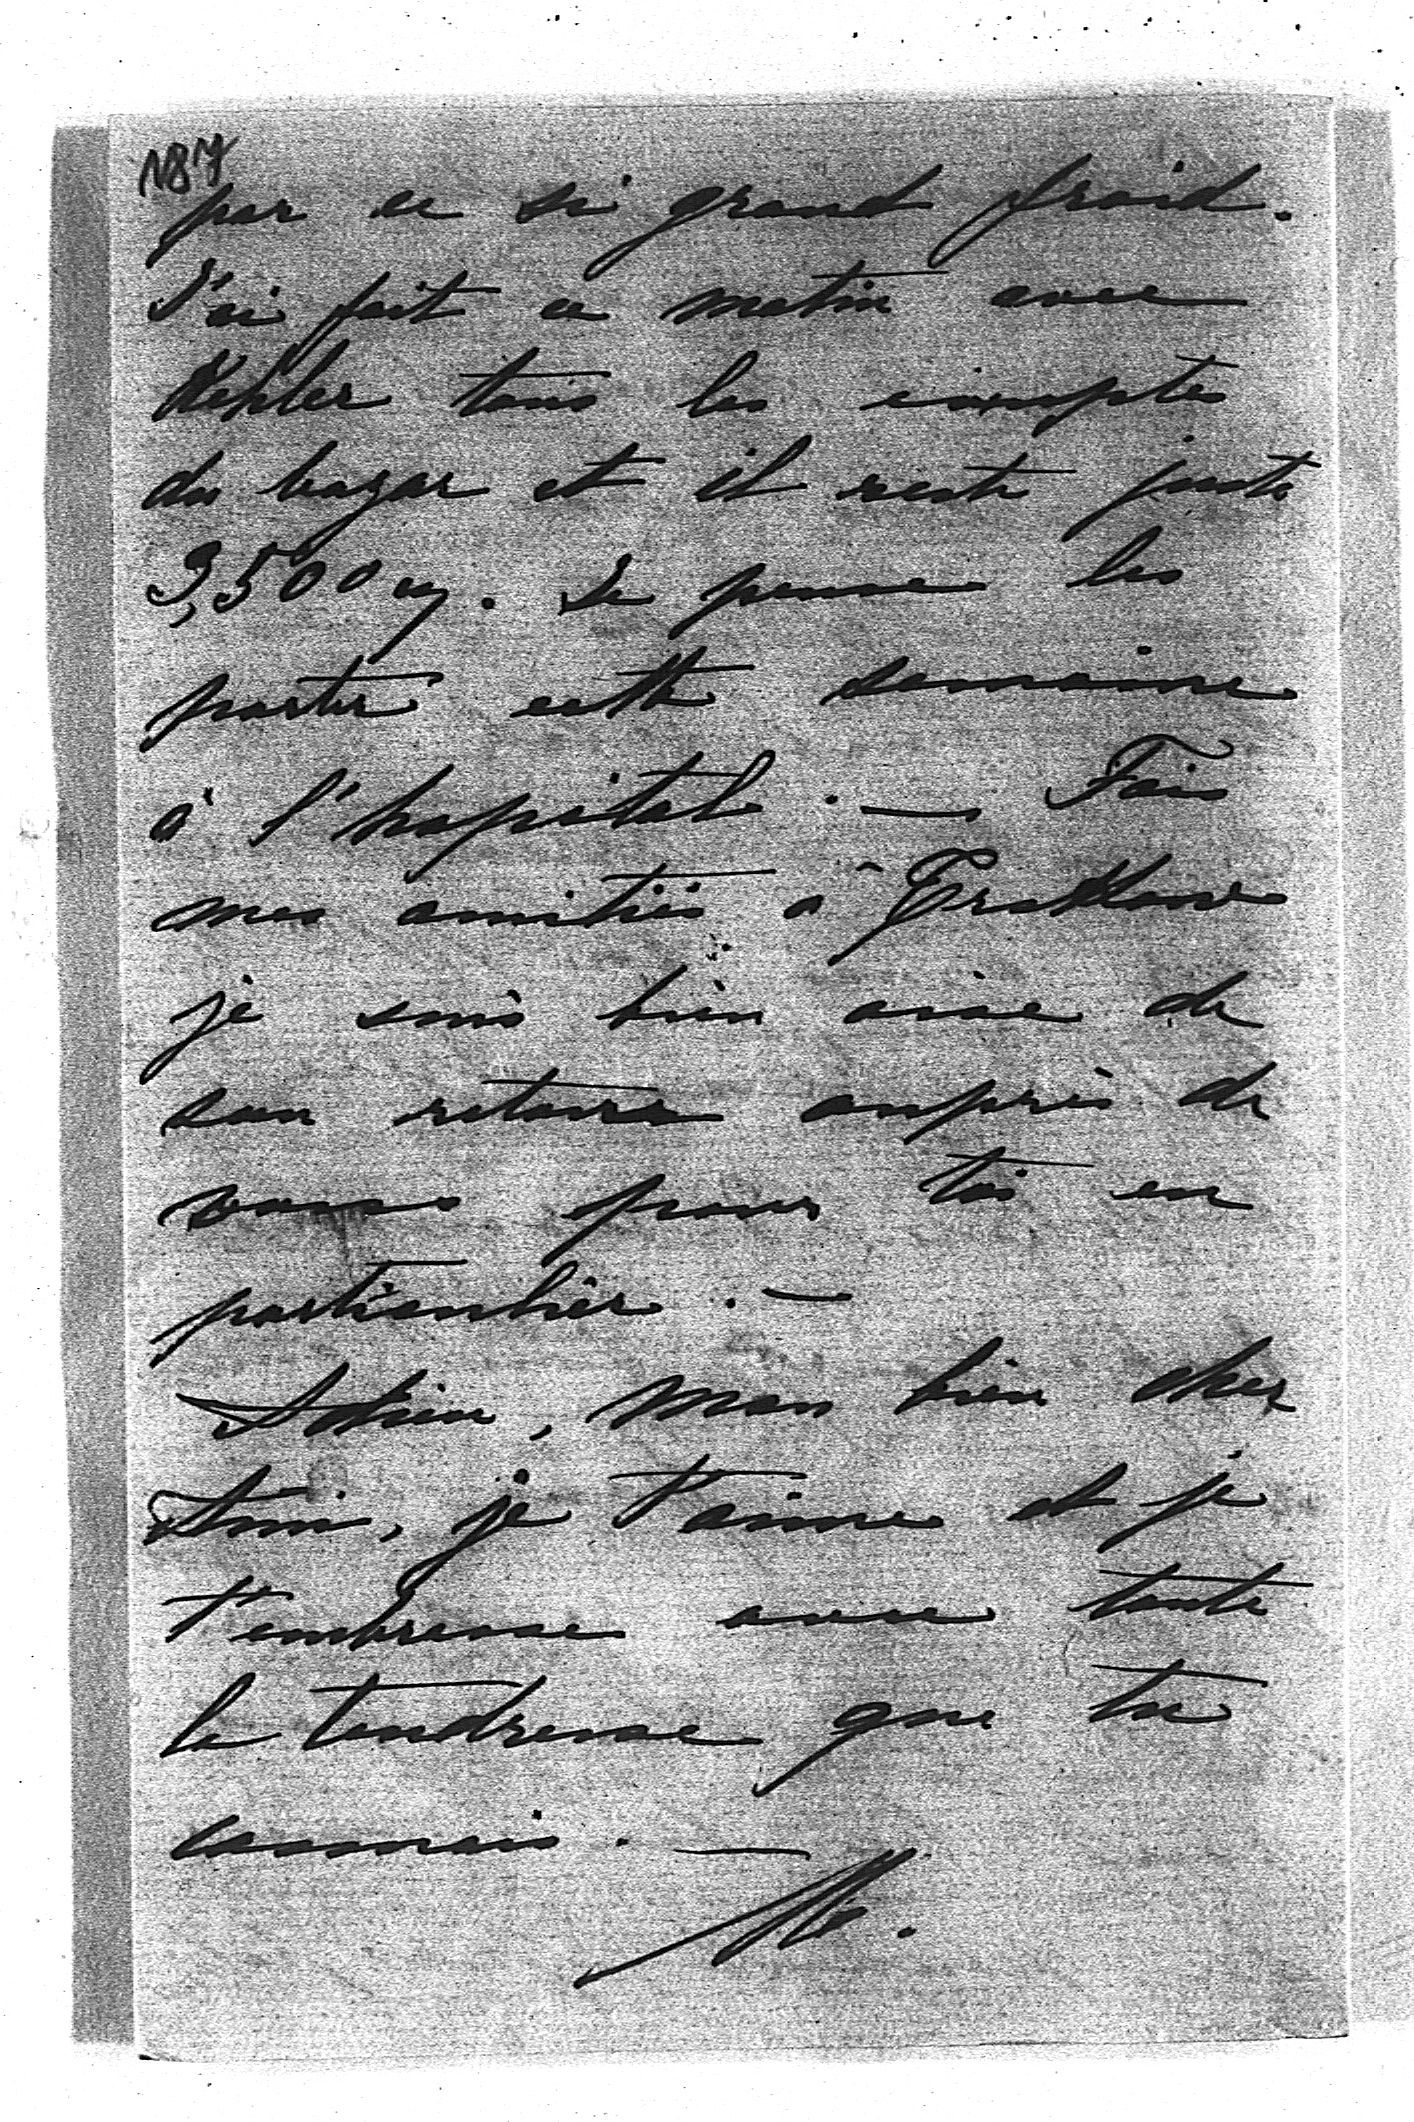 187
par ce si grand froid.
J'ai fait ce matin avec
Kehler tous les comptes
du bazar et il reste juste
3,500 
. Je pense les
porter cette semaine
à l'hopital. — Fais
mes amitiés à
je suis bien aise de
son retour auprès de
vous pour toi en
particulier. —
Adieu, mon bien cher
Ami, je t'aime et je
t'embrasse avec toute
la tendresse que tu
connais. —
M.